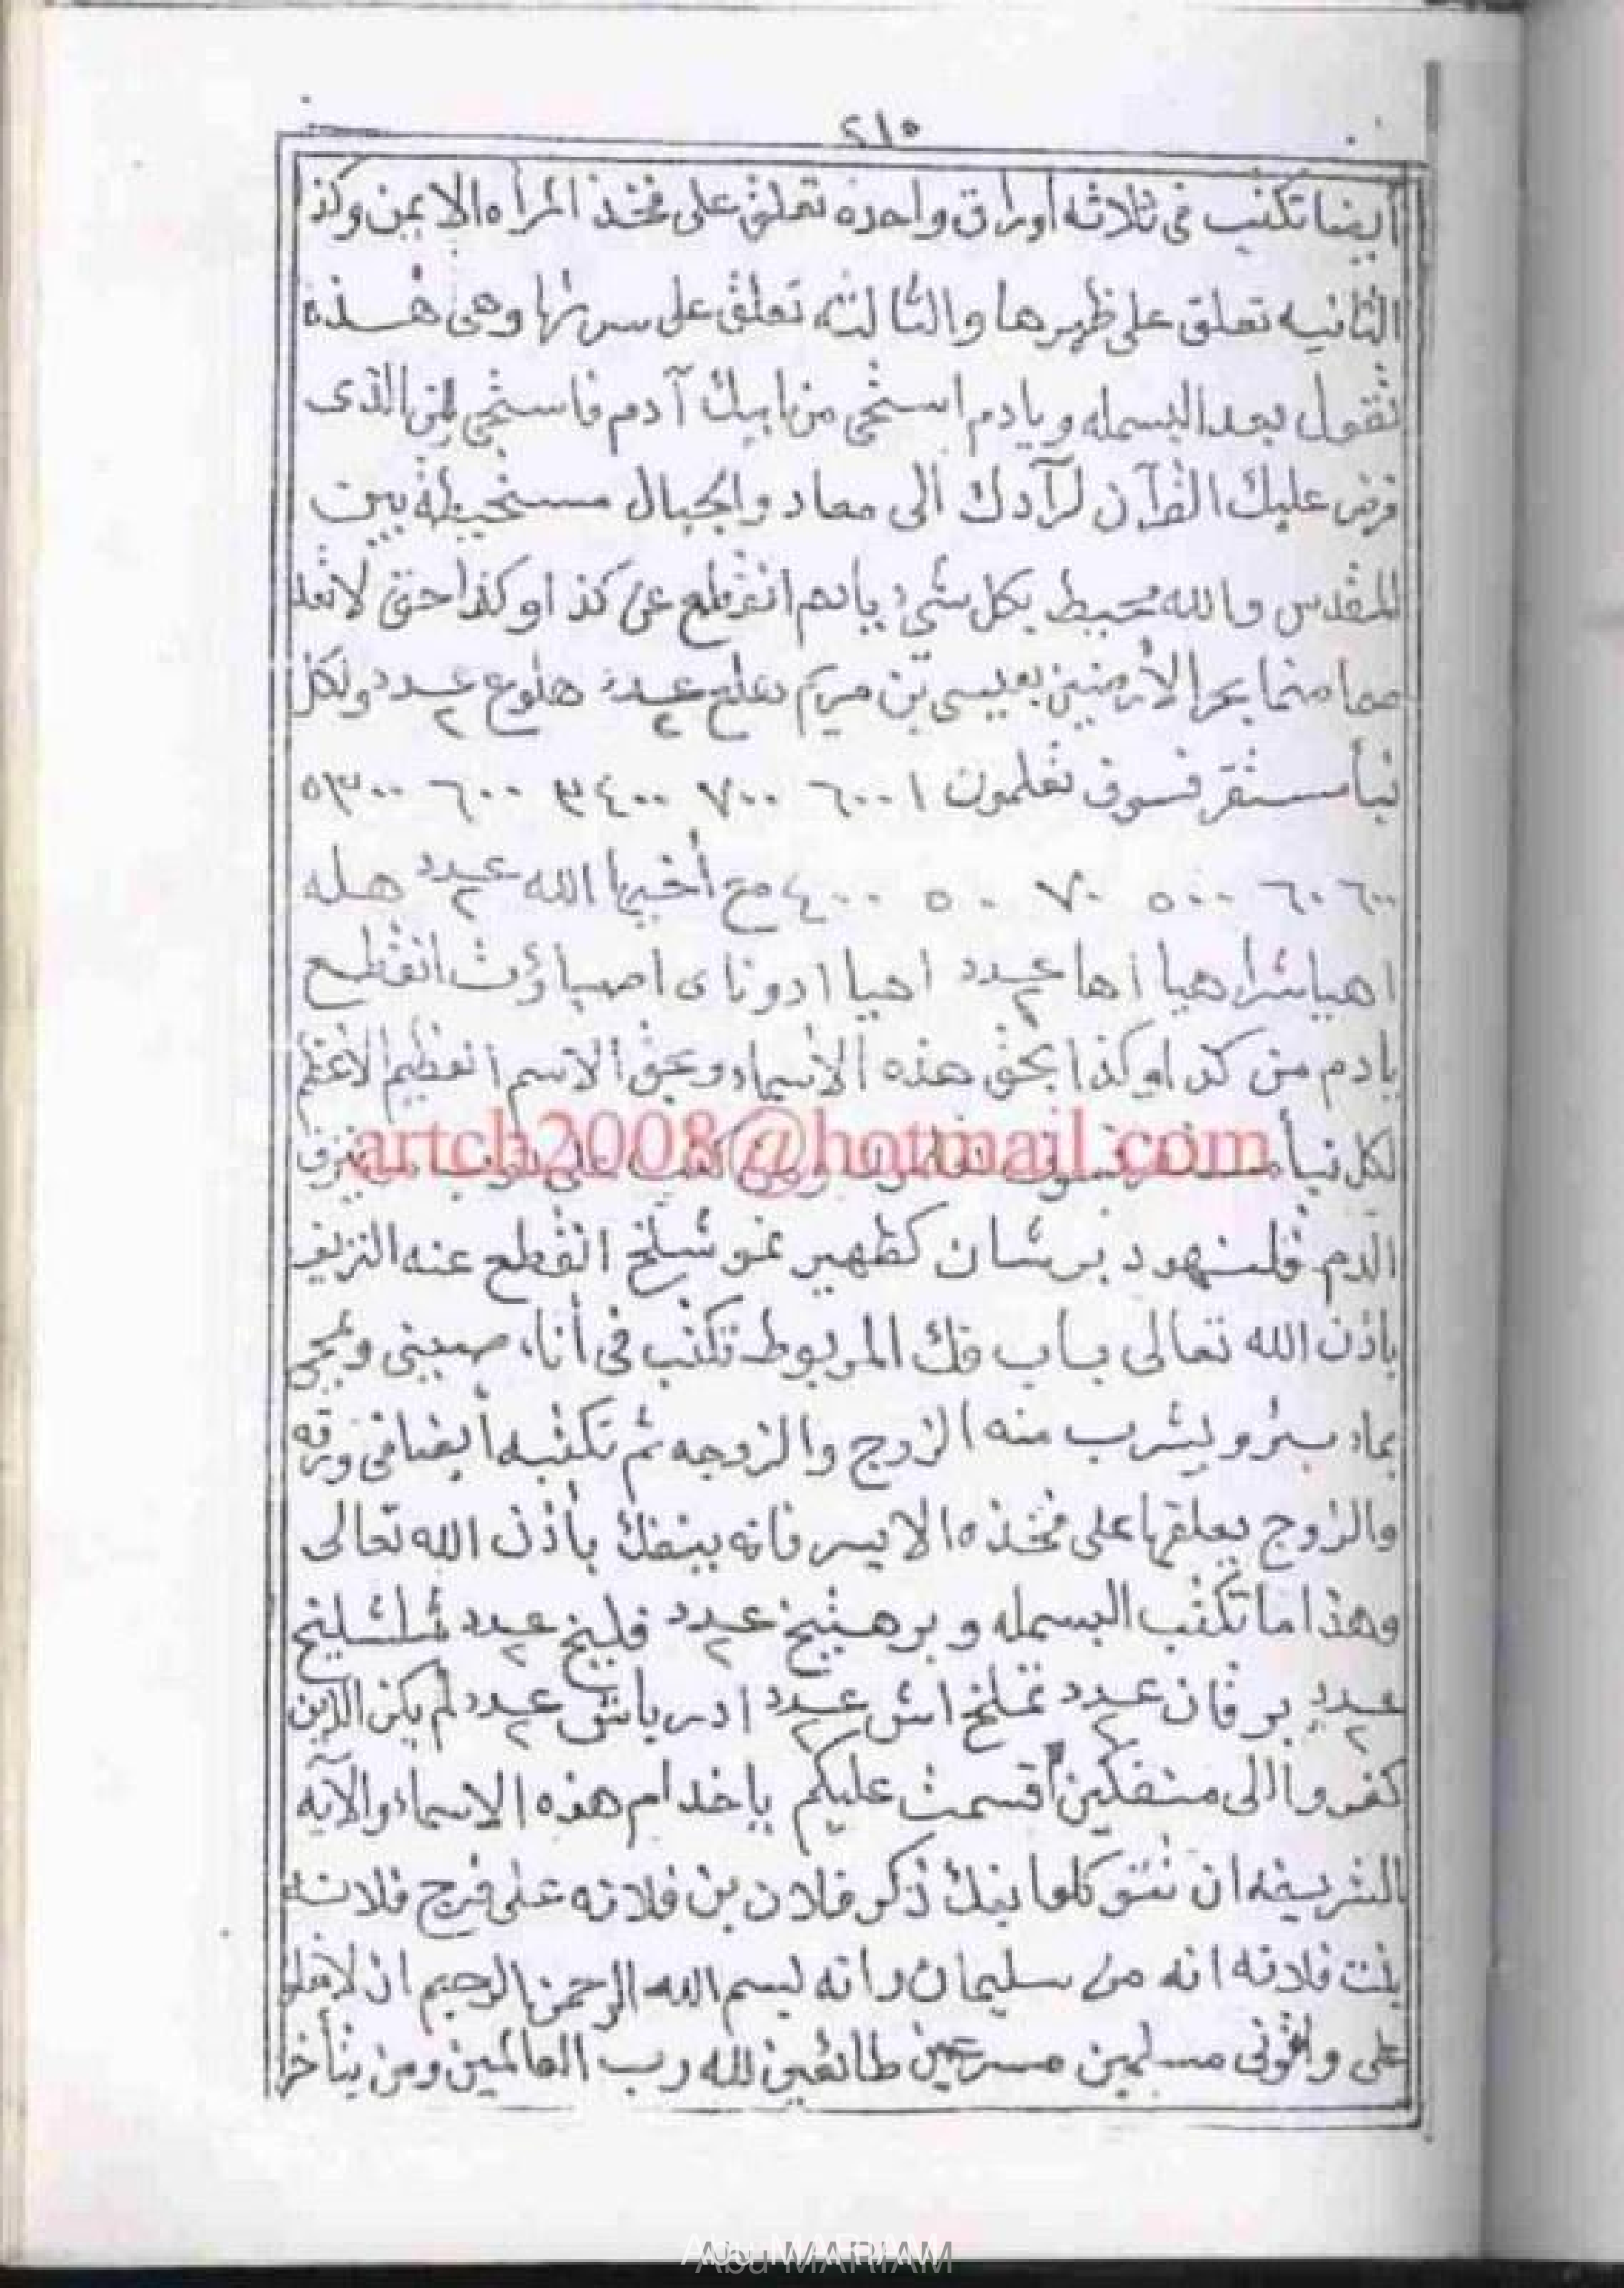 ٢١٥
أيضا تكتب فى ثلاثه اوراق واحده تعلق على فخذ المرأه الايمن وكذ
الثانيه تعلق على ظهرها والثالثه تعلق على سرتها وهى هذه
تقول بعد البسمله ويادم استحى من ابيك آدم فاستحى الذى
فرض عليك القرآن لرآدك الى معاد والجبال مستحيطة بيت
المقدس والله محيط بكل شئ يادم انقطع عن كذا وكذا حتى لا
بعيسى بن مريم عدد هلوع عدد ولكل
نبأ مستقر فسوف تعلمون ١ ٦٠٠ ٧٠٠ ٣٤٠٠ ٦٠٠ ٥٣٠٠
٦٠٠ ٦٠ ٥٠٠ ٧٠ ٥٠ ٤٠٠ مع الله عدد هله
اهيا شراهيا اها عدد اهيا ادوناى اصباؤث انقطع
يادم من كذا وكذا بحق هذه الأسماء وبحق الاسم العظيم الاعظم
لكل نبأ
artch2008@hotmail.com
الدم برشان كظهير نموشلخ انقطع عنه النزيف
باذن الله تعالى باب فك المربوط تكتب فى أناء صينى وتمحى
بماء بئر ويشرب منه الزوج والزوجه ثم تكتبه أيضا فى ورقه
والزوج يعلقها على فخذه الايسر فانه ينفك بأذن الله تعالى
وهذا ما تكتب البسمله و برهتيخ عدد فليخ عدد شلشليخ
عدد برقان عدد نملخ اش عدد ادرياش عدد لم يكن الذين
كفروا الى منفكين أقسمت عليكم ياخدام هذه الاسماء والآيه
الشريفه ان تتوكلوا بفك ذكر فلان بن فلانه على فرج فلانه
بنت فلانه انه من سليمان وانه بسم الله الرحمن الرحيم ان لا تعلو
على واتونى مسلمين مسرعين طائعين لله رب العالمين ومن يتأخر
Abu MARIAM